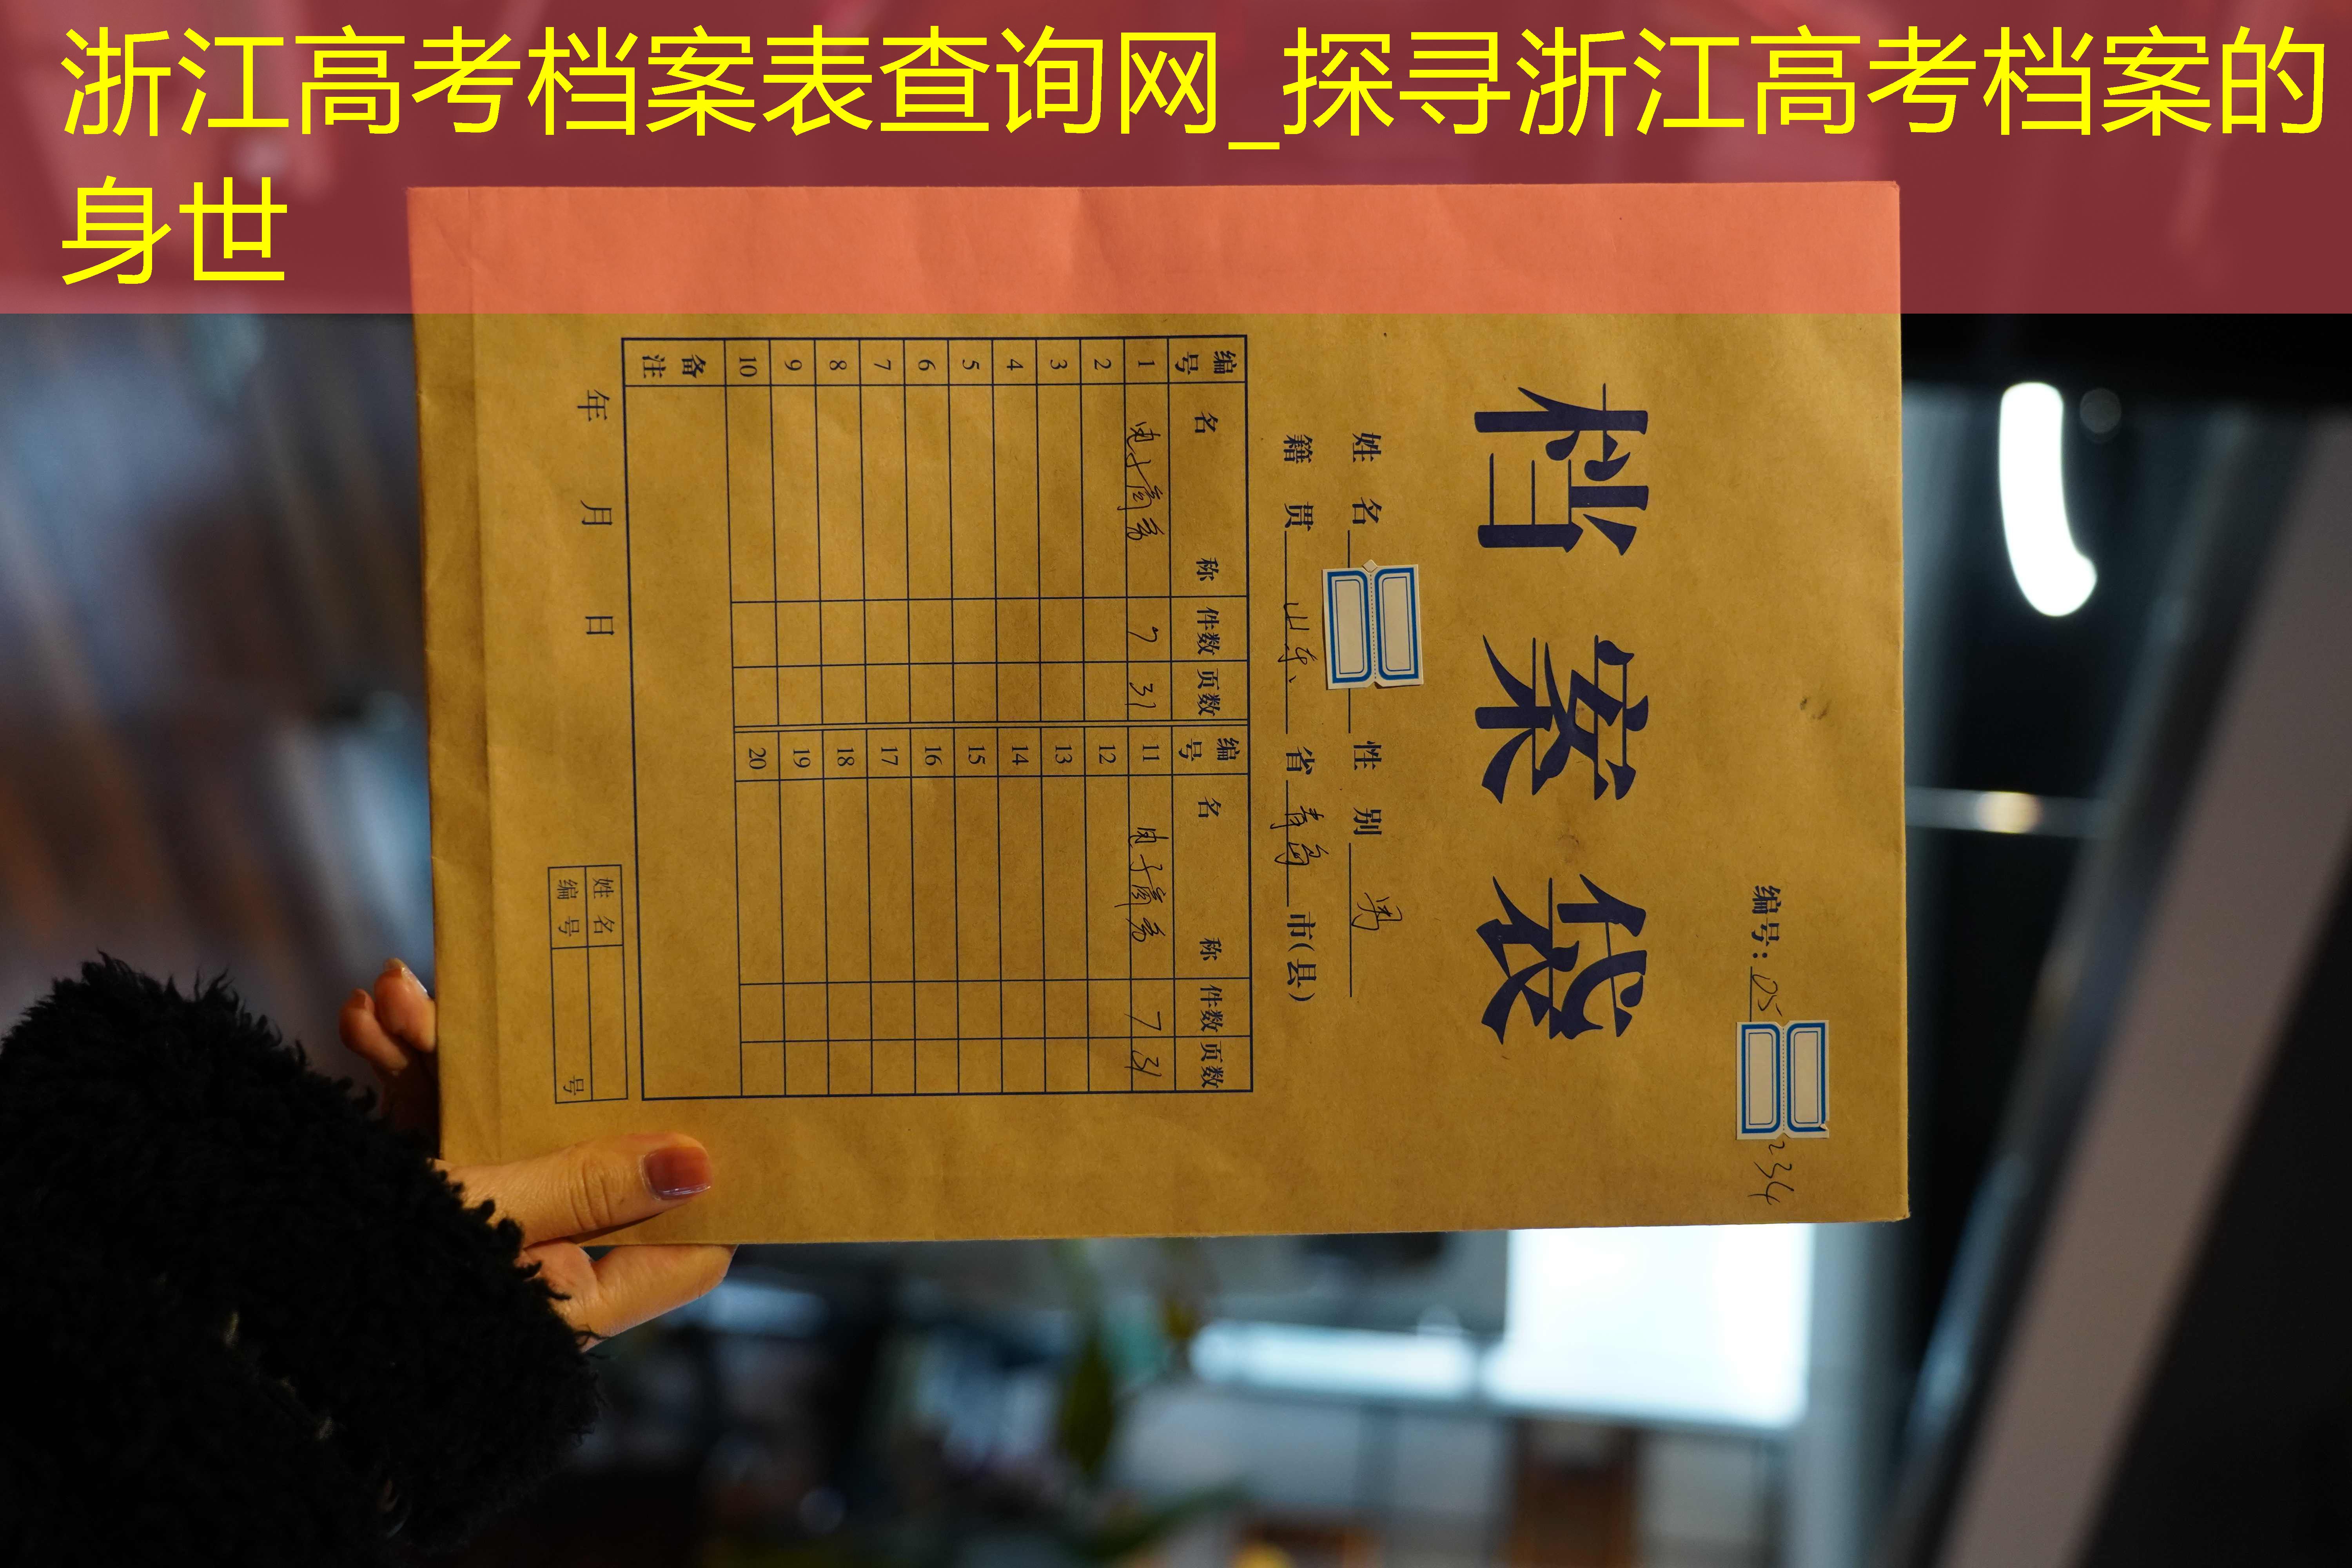 浙江高考档案表查询网_探寻浙江高考档案的
身世
编号: 05 234
档案袋
姓名 性别 男
籍贯 山东 省 青岛 市(县)
编号 名称 件数 页数 编号 名称 件数 页数
1 7 31 11 7 31
2 12
3 13
4 14
5 15
6 16
7 17
8 18
9 19
10 20
备注
姓名
编号 号
年 月 日